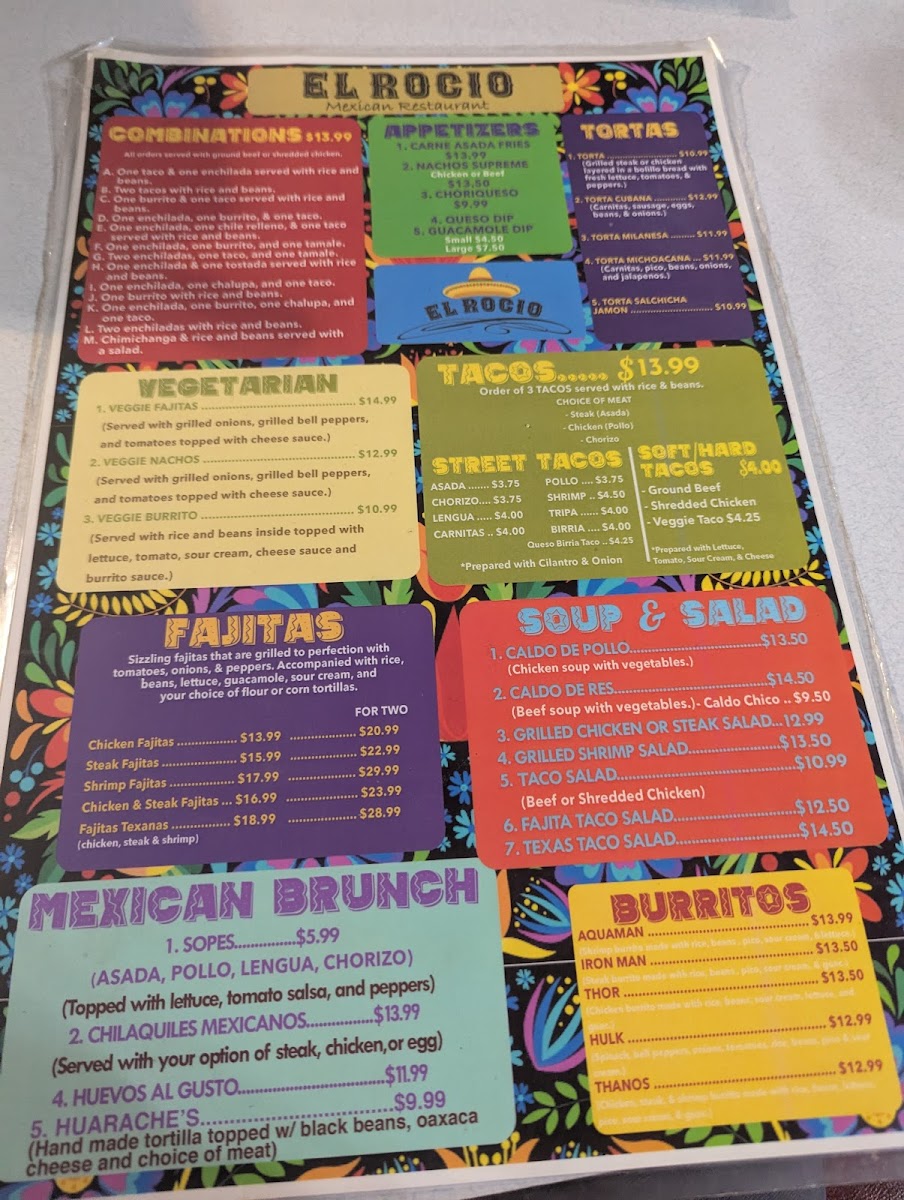 EL ROCIO
Mexican Restaurant
COMBINATIONS $13.99
All orders served with ground beef or shredded chicken.
A. One taco & one enchilada served with rice and
beans.
B. Two tacos with rice and beans.
C. One burrito & one taco served with rice and
beans.
D. One enchilada, one burrito, & one taco.
E. One enchilada, one chile relleno, & one taco
served with rice and beans.
F. One enchilada, one burrito, and one tamale.
G. Two enchiladas, one taco, and one tamale.
H. One enchilada & one tostada served with rice
and beans.
I. One enchilada, one chalupa, and one taco.
J. One burrito with rice and beans.
K. One enchilada, one burrito, one chalupa, and
one taco.
L. Two enchiladas with rice and beans.
M. Chimichanga & rice and beans served with
a salad.
APPETIZERS
1. CARNE ASADA FRIES
$13.99
2. NACHOS SUPREME
Chicken or Beef
$13.50
3. CHORIQUESO
$9.99
4. QUESO DIP
5. GUACAMOLE DIP
Small $4.50
Large $7.50
EL ROCIO
TORTAS
1. TORTA ........................ $10.99
(Grilled steak or chicken
layered in a bolillo bread with
fresh lettuce, tomatoes, &
peppers.)
2. TORTA CUBANA ............ $12.99
(Carnitas, sausage, eggs,
beans, & onions.)
3. TORTA MILANESA ......... $11.99
4. TORTA MICHOACANA ... $11.99
(Carnitas, pico, beans, onions,
and jalapenos.)
5. TORTA SALCHICHA
JAMON ........................ $10.99
VEGETARIAN
1. VEGGIE FAJITAS ........................ $14.99
(Served with grilled onions, grilled bell peppers,
and tomatoes topped with cheese sauce.)
2. VEGGIE NACHOS ........................ $12.99
(Served with grilled onions, grilled bell peppers,
and tomatoes topped with cheese sauce.)
3. VEGGIE BURRITO ........................ $10.99
(Served with rice and beans inside topped with
lettuce, tomato, sour cream, cheese sauce and
burrito sauce.)
TACOS..... $13.99
Order of 3 TACOS served with rice & beans.
CHOICE OF MEAT
- Steak (Asada)
- Chicken (Pollo)
- Chorizo
STREET TACOS
ASADA ....... $3.75
CHORIZO.... $3.75
LENGUA ..... $4.00
CARNITAS .. $4.00
POLLO .... $3.75
SHRIMP .. $4.50
TRIPA ...... $4.00
BIRRIA .... $4.00
Queso Birria Taco .. $4.25
*Prepared with Cilantro & Onion
SOFT/HARD
TACOS $4.00
- Ground Beef
- Shredded Chicken
- Veggie Taco $4.25
*Prepared with Lettuce,
Tomato, Sour Cream, & Cheese
FAJITAS
Sizzling fajitas that are grilled to perfection with
tomatoes, onions, & peppers. Accompanied with rice,
beans, lettuce, guacamole, sour cream, and
your choice of flour or corn tortillas.
FOR TWO
Chicken Fajitas ............... $13.99 ................. $20.99
Steak Fajitas ................... $15.99 ................. $22.99
Shrimp Fajitas ................. $17.99 ................. $29.99
Chicken & Steak Fajitas ... $16.99 ................. $23.99
Fajitas Texanas ............... $18.99 ................. $28.99
(chicken, steak & shrimp)
SOUP & SALAD
1. CALDO DE POLLO........................$13.50
(Chicken soup with vegetables.)
2. CALDO DE RES........................$14.50
(Beef soup with vegetables.)- Caldo Chico .. $9.50
3. GRILLED CHICKEN OR STEAK SALAD...12.99
4. GRILLED SHRIMP SALAD..................$13.50
5. TACO SALAD........................$10.99
(Beef or Shredded Chicken)
6. FAJITA TACO SALAD........................$12.50
7. TEXAS TACO SALAD........................$14.50
MEXICAN BRUNCH
1. SOPES...............$5.99
(ASADA, POLLO, LENGUA, CHORIZO)
(Topped with lettuce, tomato salsa, and peppers)
2. CHILAQUILES MEXICANOS...............$13.99
(Served with your option of steak, chicken,or egg)
4. HUEVOS AL GUSTO........................$11.99
5. HUARACHE'S........................$9.99
(Hand made tortilla topped w/ black beans, oaxaca
cheese and choice of meat)
BURRITOS
AQUAMAN ........................ $13.99
(Shrimp burrito made with rice, beans, pico, sour cream, & lettuce.)
IRON MAN ........................ $13.50
(Steak burrito made with rice, beans, pico, sour cream, & guac.)
THOR ........................ $13.50
(Chicken burrito made with rice, beans, sour cream, lettuce, and
guac.)
HULK ........................ $12.99
(Spinach, bell peppers, onions, tomatoes, rice, beans, pico & sour
cream.)
THANOS ........................ $12.99
(Chicken, steak, & shrimp burrito made with rice, beans, lettuce,
pico, sour cream, & guac.)